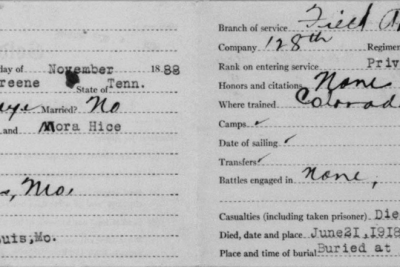 day of November 1888
reene State of Tenn.
Married? No
and Mora Hice
, Mo.
uis, Mo.
Branch of service Field
Company 128th Regimen
Rank on entering service Priv
Honors and citations None
Where trained Colorad
Camps ✓
Date of sailing ✓
Transfers ✓
Battles engaged in none,
Casualties (including taken prisoner) Die
Died, date and place June21,1918
Place and time of burial Buried at